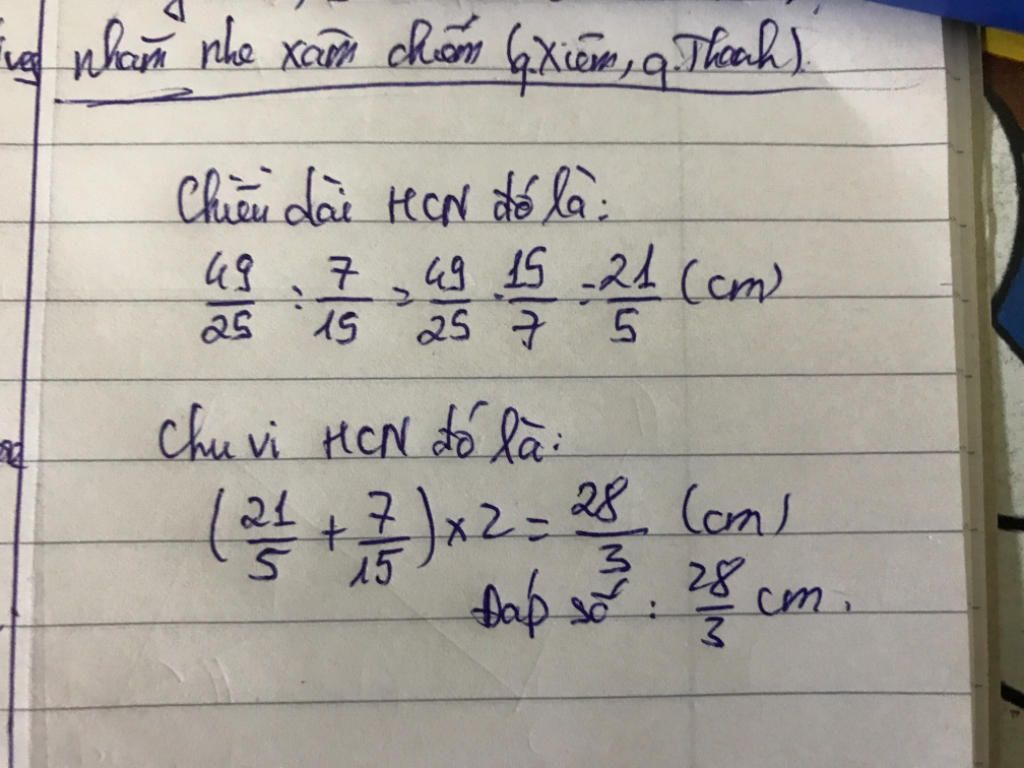 nhằm nhe xâm chiếm (q.Xiêm, q.Thanh).
Chiều dài HCN đó là:
49/25 : 7/15 = 49/25 . 15/7 = 21/5 (cm)
Chu vi HCN đó là:
(21/5 + 7/15) x 2 = 28/3 (cm)
Đáp số : 28/3 cm.